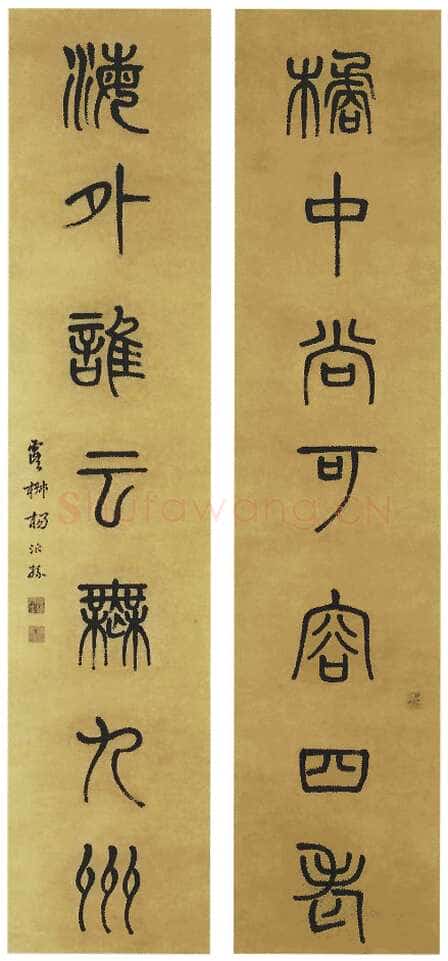 橘中尚可容四老
海外誰云無九州
虞椒楊沂孫
Shufawang.CN